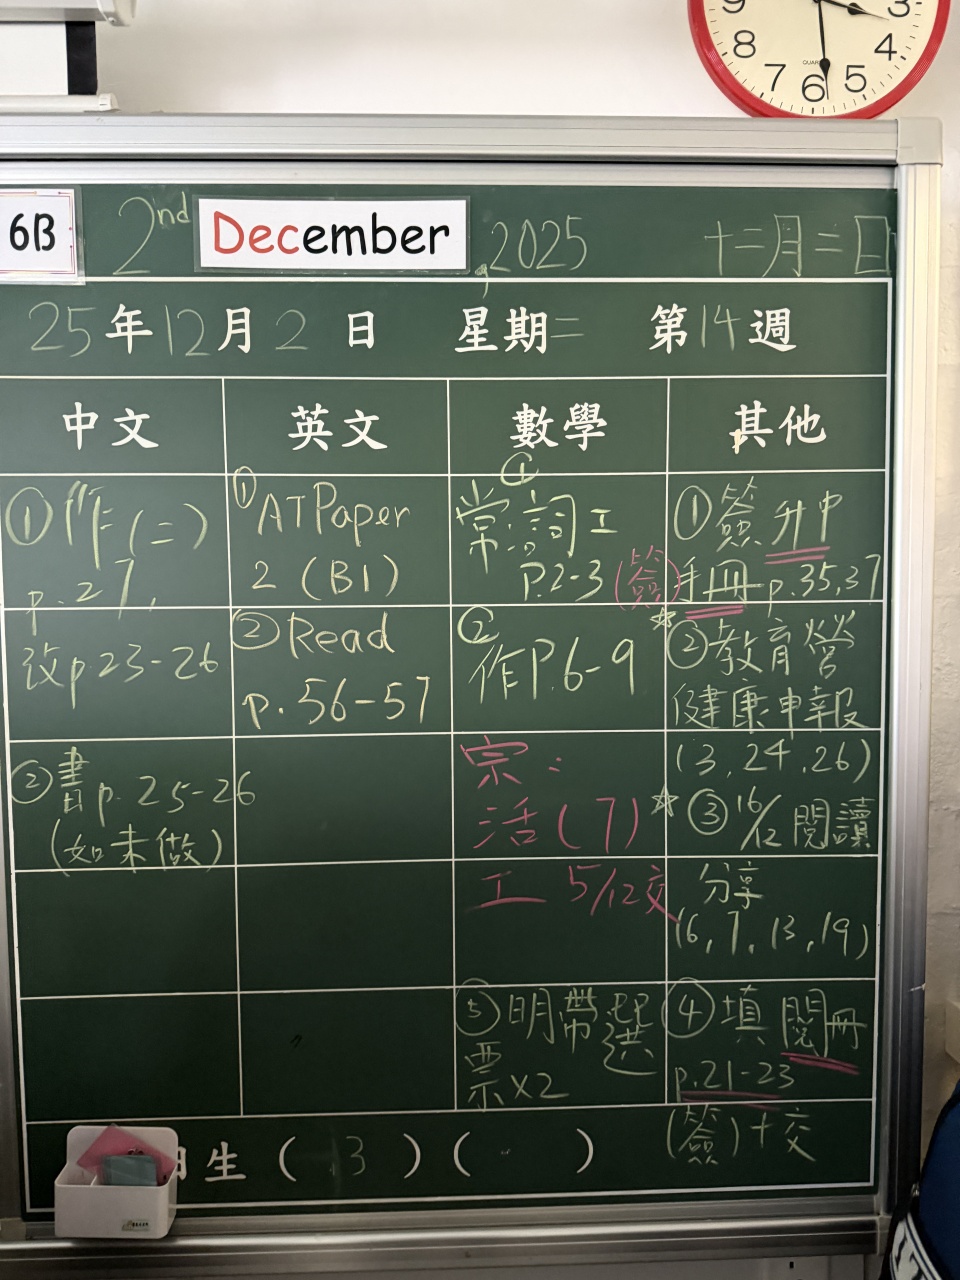 9
3
8
4
7
6
5
QUARTZ
6B
2nd December, 2025
十二月二日
25年12月2日 星期二 第14週
中文
英文
數學
其他
①作(二)
p.27,
改p.23-26
②書p.25-26
(如未做)
①AT Paper
2 (B1)
②Read
p.56-57
①
常詞工
P.2-3 (簽)
②
作P.6-9
宗:
活(7)
工 5/12交
①簽升中
手冊p.35,37
☆②教育營
健康申報
(3,24,26)
☆③16/12閱讀
分享
(6,7,13,19)
④填閱冊
p.21-23
(簽)+交
⑤明帶
選
票x2
生(3)( )